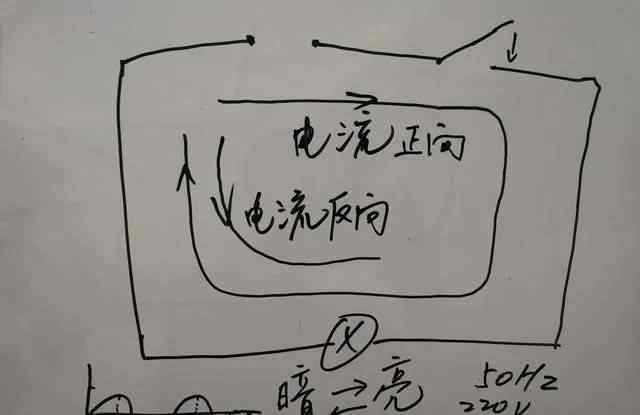 电流正向
电流反向
X
暗⇄亮
50Hz
220V